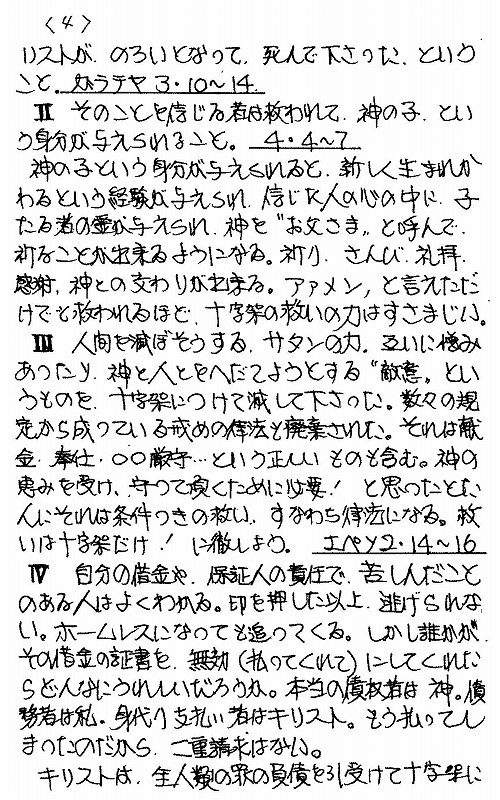 〈4〉
リストが、のろいとなって、死んで下さった、という
こと。ガラテヤ 3・10〜14
II そのことを信じる者は救われて、神の子、とい
う身分が与えられること。 4・4〜7
神の子という身分が与えられると、新しく生まれか
わるという経験が与えられ、信じた人の心の中に、子
たる者の霊が与えられ、神を〝お父さま〟と呼んで、
祈ることが出来るようになる。祈り、さんび、礼拝、
感謝、神との交わりが出来る。アァメン、と言えただ
けでも救われるほど、十字架の救いの力はすさまじい。
III 人間を滅ぼそうする、サタンの力、互いに憎み
あったり、神と人とをへだてようとする〝敵意〟とい
うものを、十字架につけて滅して下さった。数々の規
定から成っている戒めの律法も廃棄された。それは献
金、奉仕、〇〇厳守…という正しいものも含む。神の
恵みを受け、守って頂くためには必要! と思ったとた
んにそれは条件つきの救い、すなわち律法になる。救
いは十字架だけ! に徹しよう。 エペソ2・14〜16
IV 自分の借金や、保証人の責任で、苦しんだこと
のある人はよくわかる。印を押した以上、逃げられな
い。ホームレスになっても追ってくる。しかし誰かが、
その借金の証書を、無効(払ってくれて)にしてくれた
らどんなにうれしいだろうか。本当の債権者は 神。債
務者は私・身代り支払い者はキリスト。もう払ってし
まったのだから、二重請求はない。
キリストは、全人類の罪の負債を引受けて十字架に